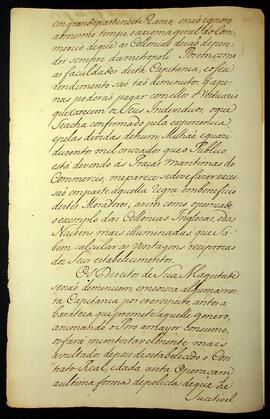 em grande parte neste Ramo, e não ignoro
ao mesmo tempo a axioma geral do Com-
mercio de que as Colonias devaõ depen-
der sempre da metropoli. Porém como
as faculdades desta Capitania, e o seu
rendimento saõ taõ deminutos, que a-
penas poderaõ pagar com elles o Vestuario
que carecem os Seus Individuos, o que
Se acha confirmado pela experiencia
e pelas dividas de hum Milhaõ e quatro
durento mil cruzados que o Publico
está devendo ás Praças maritimas do
Commercio, me parece se deve fazer exces-
saõ em parte àquella regra em beneficio
destes Moradores, assim como o persuade
o exemplo das Colonias Inglezas, e das
Naçoens mais illuminadas, que Sa-
bem calcular as ventagens reciprocas
dos Seus estabelecimentos.
Os Direitos de Sua Magestade
se naõ diminuem em coiza alguma nes-
ta Capitania por este respeito, antes a
barateza que promete aquelle genero,
animando o Povo a mayor consumo,
os fará incontestavelmente mais
avultados depois de estabelecido o Con-
trato Real, e dada a esta Operaçaõ
a ultima forma de policia de que he
Sucetivel